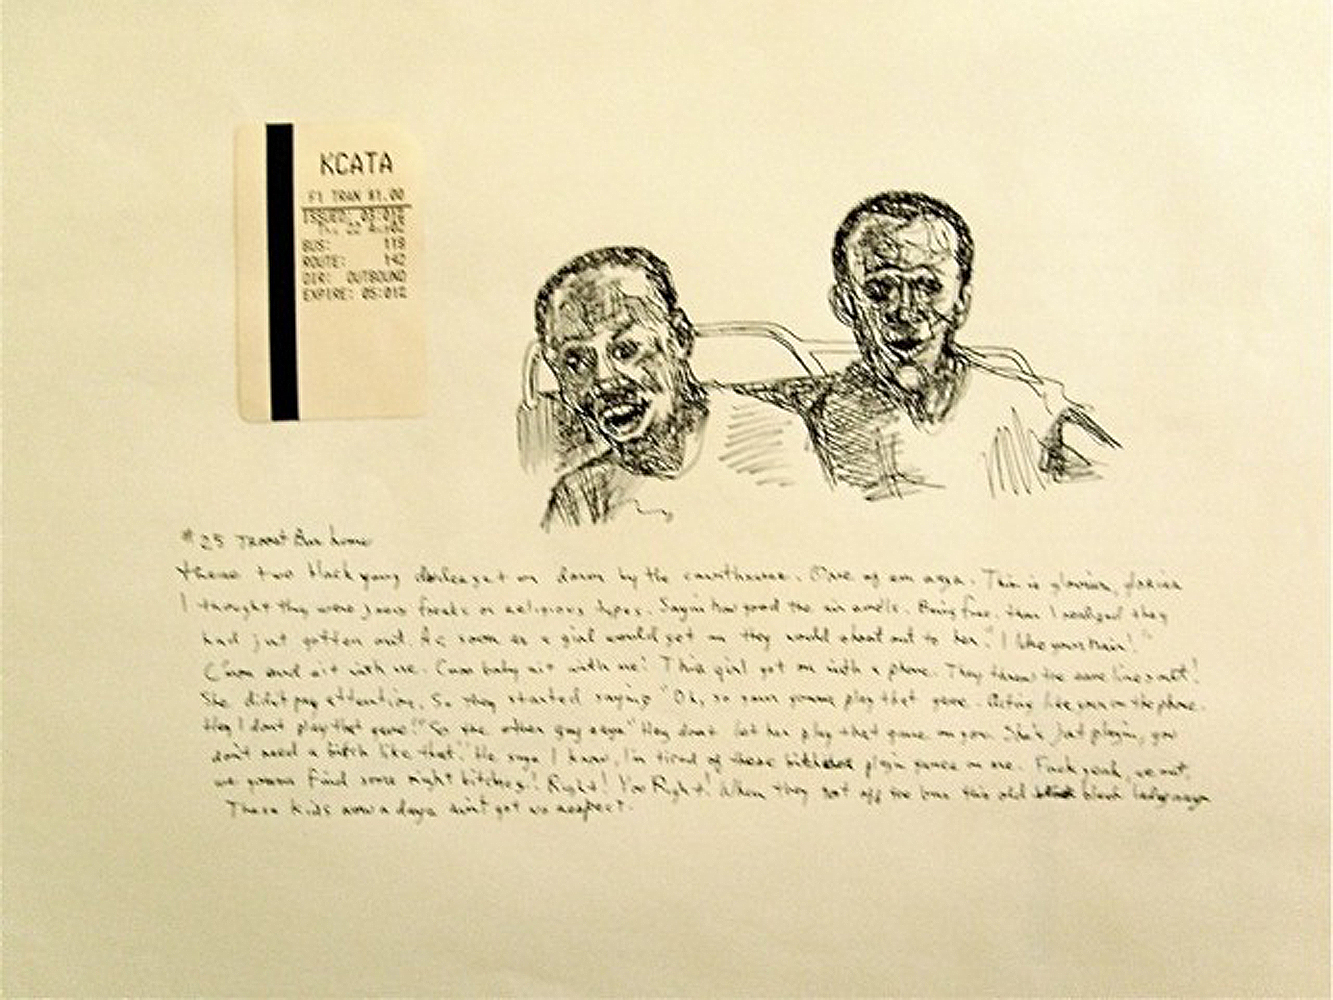 KCATA
F1 TRAN $1.00
ISSUED: 03:01
22
BUS: 118
ROUTE: 142
DIR: OUTBOUND
EXPIRE: 05:01
#25 Troost Bus home
these two black young get on down by the courthouse. One of em says. This is glorious,
I thought they were Jesus freaks or religious types. Sayin how good the air smells. Being free. then I realized they
had just gotten out. As soon as a girl would get on they would shout out to her. "I like your hair!"
C'mon and sit with me. C'mon baby sit with me! This girl got on with a phone. They threw the same lines out!
She didn't pay attention. So they started saying "Oh, so your gonna play that game. Acting like your on the phone.
Hey I don't play that game!" So the other guy says "Hey don't let her play that game on you. She's just playin, you
don't need a bitch like that." He says I know, I'm tired of these bitches playin games on me. Fuck yeah, we out,
we gonna find some right bitches! Right! You Right! When they got off the bus this old black lady says
These kids now a days ain't got no respect.